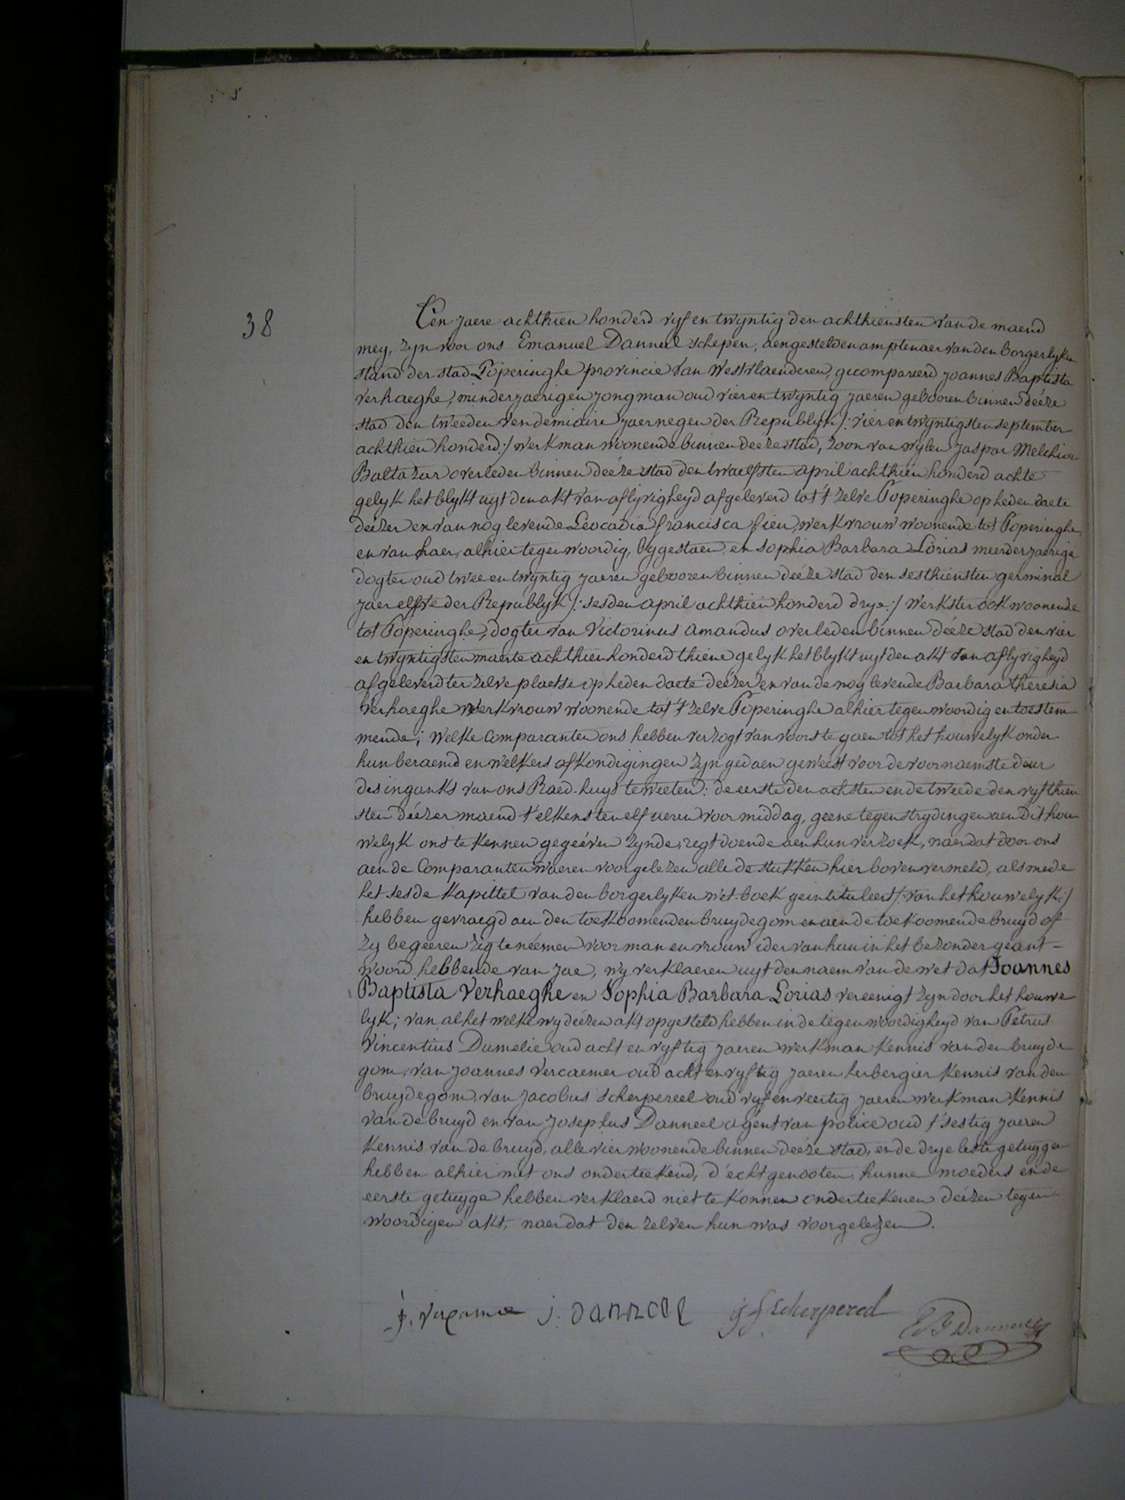 38
Ten jaere achthien honderd vyf en twyntig den achthiensten van de maend
mey, zyn voor ons Emanuel Danneel schepen, aengestelden amptenaer van den borgerlyken
stand der stad Poperinghe provincie van Westvlaenderen, gecompareerd Joannes Baptista
Verhaeghe, minderjaerigen jongman oud vier en twyntig jaeren gebooren binnen deéze
stad den tweeden vendemiaire jaer negen der Republyk /: vier en twyntigsten september
achthien honderd :/ werkman woonende binnen deeze stad, zoon van wylen Jaspar Melchior
Baltazar overleden binnen deéze stad den twaelfsten april achthien honderd achte
gelyk het blykt uyt den akt van aflyvigheyd afgeleverd tot 't zelve Poperinghe op heden daete
deézer en van nog levende Leocadia francisca fieu, werkvrouw woonende tot Poperinghe
en van haer, alhier tegenwoordig, bygestaen, en Sophia Barbara Lorias meerderjaerige
dogter oud twee en twyntig jaeren gebooren binnen deéze stad den sesthiensten germinal
jaer elfste der Republyk /: sesden april achthien honderd drye :/ werkster ook woonende
tot Poperinghe, dogter van Victorinus Amandus overleden binnen deéze stad den vier
en twyntigsten maerte achthien honderd thiene gelyk het blykt uyt den akt van aflyvigheyd
afgeleverd ter zelve plaetse op heden daete deézer en van de nog levende Barbara Theresia
Verhaeghe werkvrouw woonende tot 't zelve Poperinghe alhier tegenwoordig en toestem-
mende; welke comparanten ons hebben verzogt van voorts te gaen tot het houwelyk onder
hun beraemd en welkers afkondigingen zyn gedaen geweest voor de voornaemste deur
des inganks van ons Raed-huys te weeten: de eerste den achsten en de tweede den vyfthien
sten deézer maend t'elkens ten elf ueren voormiddag, geene tegenstrydingen aen dit hou
welyk ons te kennen gegeéven zynde; regt doende aen hun verzoek, naer dat door ons
aen de comparanten waeren voorgelezen alle de stukken hier boven vermeld, als mede
het sesde kapittel van den borgerlyken wet-boek geintituleert /: van het houwelyk :/
hebben gevraegd aen den toekoomenden bruydegom en aen de toekoomende bruyd of
zy begeeren zig te neémen voor man en vrouw ider van hun in het bezonder geant-
woord hebbende van jae, wy verklaeren uyt den naem van de wet dat Joannes
Baptista Verhaeghe en Sophia Barbara Lorias vereenigt zyn door het houwe
lyk; van al het welke wy deézen akt opgesteld hebben in de tegenwoordigheyd van Petrus
Vincentius Dumelie oud acht en vyftig jaeren werkman kennis van den bruyde
gom, van Joannes Vercaemer oud acht en vyftig jaeren herbergier kennis van den
bruydegom, van Jacobus Scherpereel oud vyf en veertig jaeren werkman kennis
van de bruyd en van Josephus Danneel agent van police oud t'sestig jaeren
kennis van de bruyd, alle vier woonende binnen deéze stad, en de drye leste getuygen
hebben alhier met ons onderteekend, d'echtgenooten, hunne moeders en de
eerste getuyge hebben verklaerd niet te konnen onderteekenen deézen tegen
woordigen akt, naer dat den zelven hun was voorgelezen.
j. Danneel j f Scherpereel